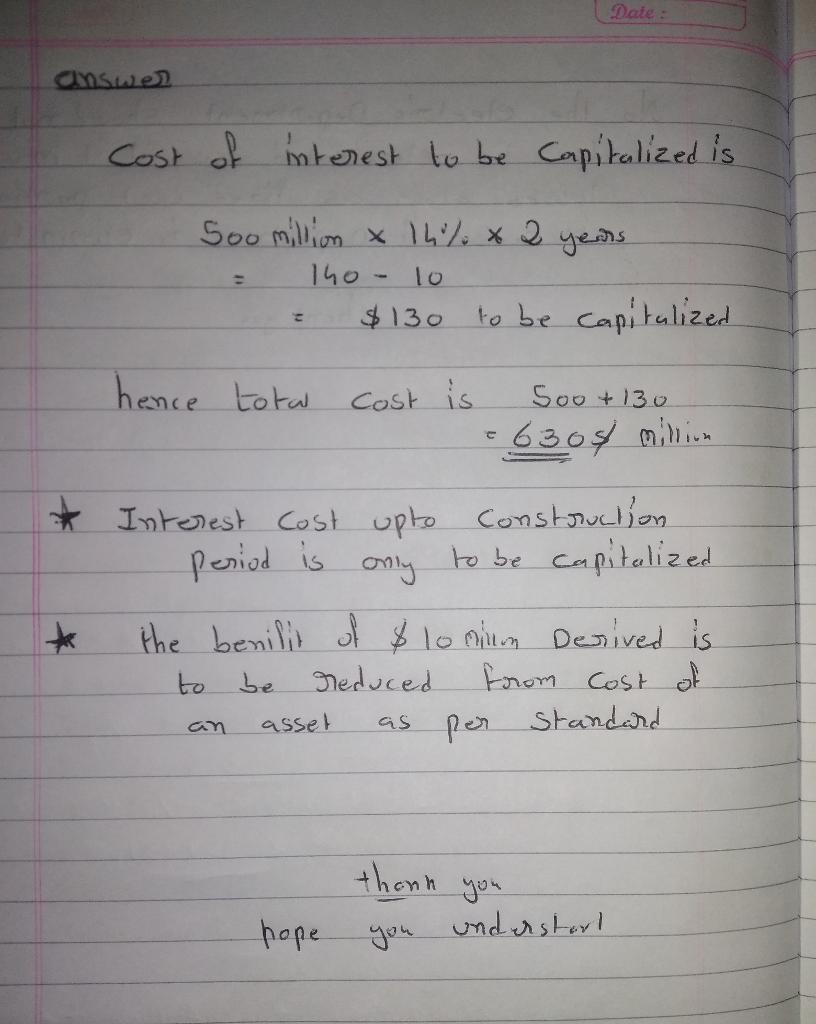 Date :
answer
Cost of interest to be Capitalized is
500 million x 14% x 2 years
= 140 - 10
= $130 to be capitalized
hence total cost is 500 + 130
= 630$ million
★ Interest cost upto construction
period is only to be capitalized
★ the benifit of $ 10 million Derived is
to be reduced from cost of
an asset as per standard
thank you
hope you understand